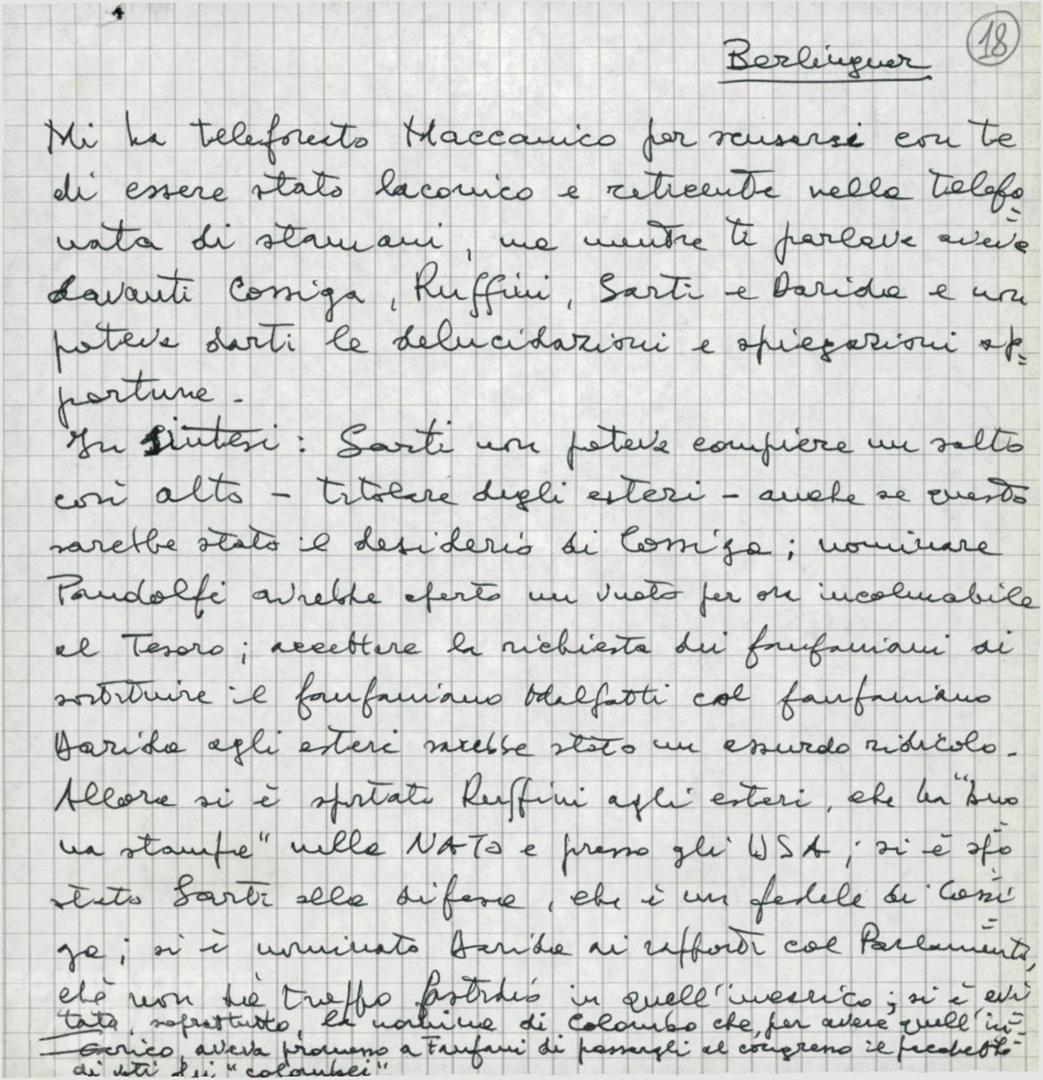 18
Berlinguer
Mi ha telefonato Maccanico per scusarsi con te
di essere stato laconico e reticente nella telefo
nata di stamani, ma mentre ti parlava aveva
davanti Cossiga, Ruffini, Sarti e Darida e non
poteva darti le delucidazioni e spiegazioni op=
portune -
In Sintesi: Sarti non poteva compiere un salto
così alto - titolare degli esteri - anche se questo
sarebbe stato il desiderio di Cossiga; nominare
Pandolfi avrebbe aperto un vuoto per ora incolmabile
al Tesoro; accettare la richiesta dei fanfaniani di
sostituire il fanfaniano Malfatti col fanfaniano
Darida agli esteri sarebbe stato un assurdo ridicolo -
Allora si è spostato Ruffini agli esteri, che ha "buo
na stampa" nella NATO e presso gli USA; si è spo
stato Sarti alla difesa, che è un fedele di Cossi
ga; si è nominato Darida ai rapporti col Parlamento,
chè non dia troppo fastidio in quell'incarico; si è evi
tata, soprattutto, la nomina di Colombo che, per avere quell'in=
carico, aveva promesso a Fanfani di passargli al congresso il pacchetto
di voti dei "colombei"